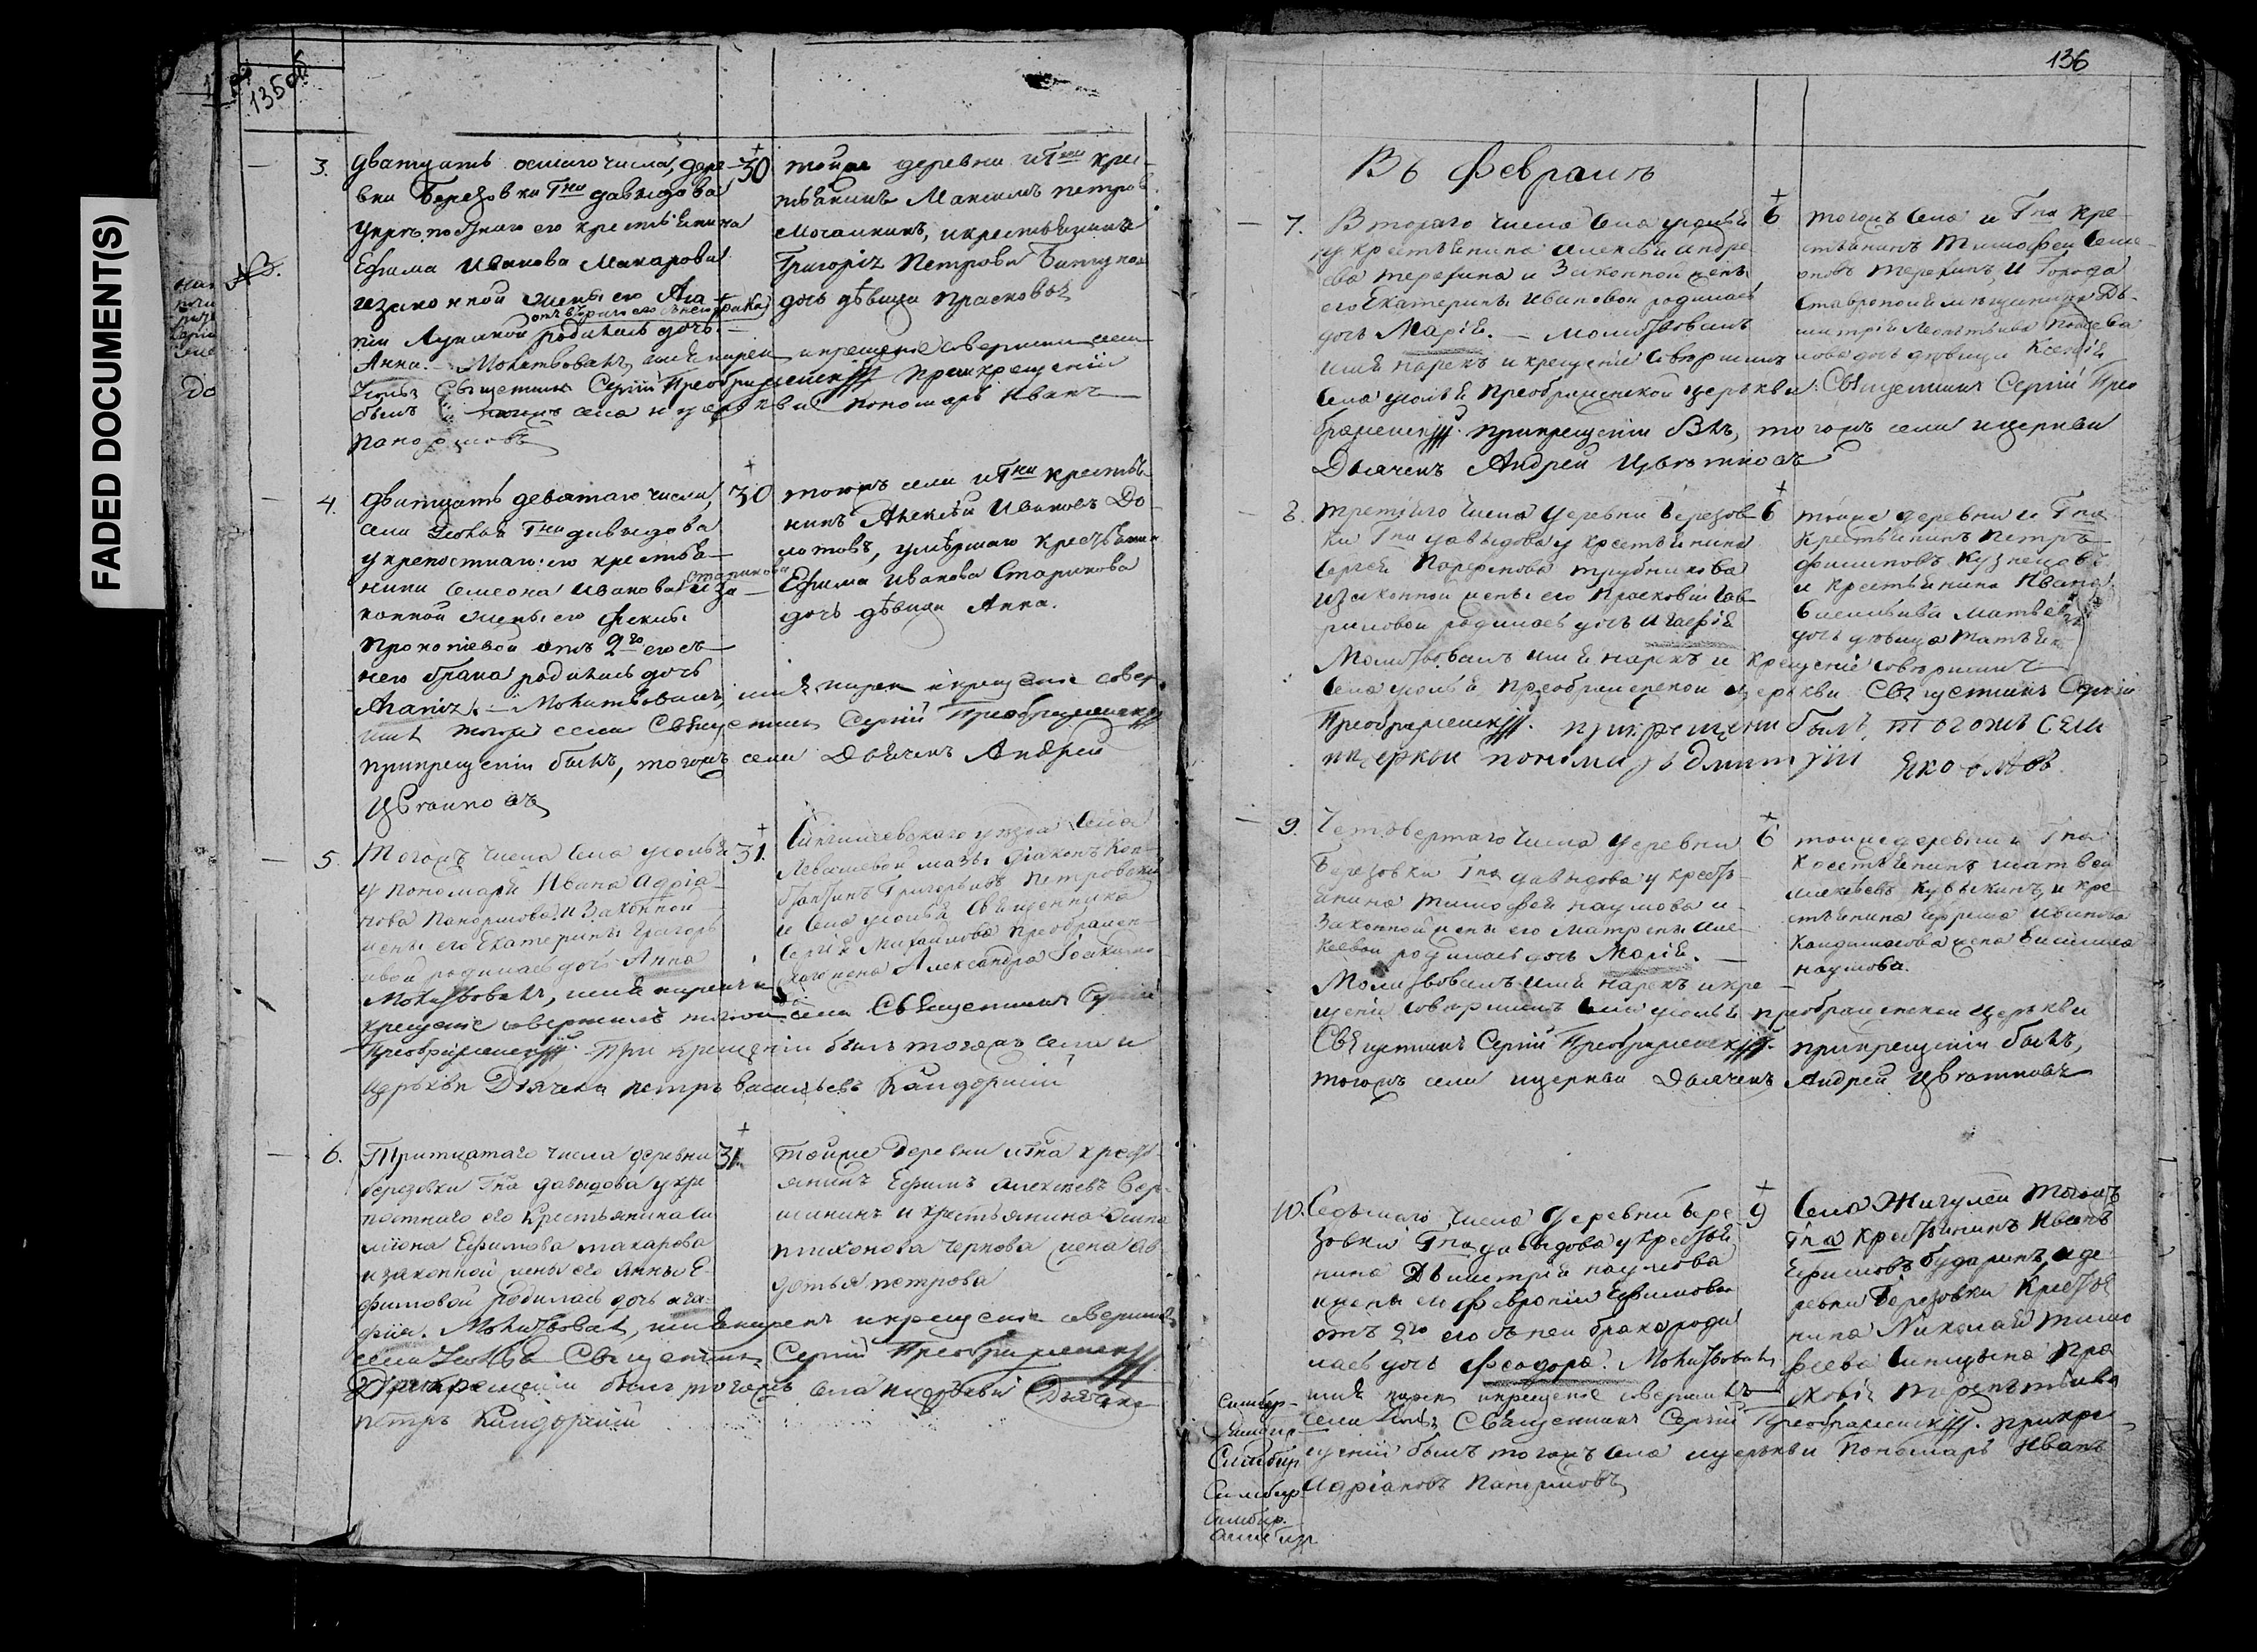 FADED DOCUMENT(S)
135 об
3. Дватцать осмаго числа, дере-
вни Березовки Гна Давыдова
у крѣпостнаго его крестьянина
Ефима Иванова Макарова
и законной жены его
отъ втораго его с нею брака
родилась дочь
Анна. — Молитвовалъ, имя нарекъ и крещение совершилъ села
Священникъ Сергій Преображенскій При крещеніи
былъ тогожъ села и церкви пономарь Иванъ
Панормовъ
+ 30
тойже деревни и Гна кре-
стьянинъ Максимъ Петровъ
Мочалкинъ, и крестьянина
Григорія Петрова
дочь дѣвица Прасковья
4. Дватцать девятаго числа,
села Усолья Гна Давыдова
у крепостнаго его крестья-
нина Симеона Иванова Старикова и за-
конной жены его Феклы
Прокопіевой отъ 2го его съ
нею брака родилась дочь
— Молитвовалъ, имя нарекъ и крещение совер-
шилъ тогожъ села Священникъ Сергій Преображенскій
при крещеніи былъ, тогожъ села Дьячекъ Андрей
Цвѣтковъ
+ 30
тогожъ села и Гна крестья-
нинъ Алексѣй Ивановъ До-
лотовъ, умершаго крестьянина
Ефима Иванова Старикова
дочь дѣвица Анна.
5. Тогожъ числа села Усолья
у пономаря Ивана Адріа-
нова Панормова и законной
жены его Екатерины Григорь-
евой родилась дочь Анна
Молитвовалъ, имя нарекъ и
крещение совершилъ тогожъ села Священникъ Сергій
Преображенскій. При крещеніи былъ тогожъ села и
церкви Дьячекъ Петръ Васильевъ Кандорскій
+ 31.
Сингилеевскаго уѣзда села
Левашевой мазы діаконъ Кон-
стантинъ Григорьевъ Петровскій
и села Усолья Священника
Сергія Михайлова Преображен-
скаго жена Александра
6. Тритцатаго числа деревни
Березовки Гна Давыдова у кре-
постнаго его крестьянина Си-
миона Ефимова Макарова
и законной жены его Анны Е-
фимовой родилась дочь Ага-
фiя. Молитвовалъ, имя нарекъ и крещение совершилъ
села Усолья Священникъ Сергій Преображенскій
При крещеніи былъ тогожъ села и церкви Дьячекъ
Петръ Кандорскій
+ 31.
Тойже деревни и Гна кресть-
янинъ Ефимъ Алексѣевъ Вер-
шининъ и крестьянина Осипа
Тихонова Чернова жена Ав-
дотья Петрова
136
Въ Февралѣ
7. Втораго числа села Усолья
у крестьянина Алексѣя Андре-
ева Терехина и законной жены
его Екатерины Ивановой родилась
дочь Марія. — Молитвовалъ
имя нарекъ и крещеніе совершилъ
села Усолья Преображенской церькви Священникъ Сергій Прео-
браженскій. при крещеніи былъ, тогожъ села и церкви
Дьячекъ Андрей Цвѣтковъ
+ 6
тогожъ села и Гна кре-
стьянинъ Тимофей Семе-
новъ Терехинъ, и Города
Ставрополя мещанина Ди-
митрія
дочь девица Ксенія
8. третьяго числа деревни Березов-
ки Гна Давыдова у крестьянина
Сергея Парфенова Трубникова
и законной жены его Прасковьи Гав-
риловой родилась дочь Агафiя
Молитвовалъ имя нарекъ и крещеніе совершилъ
села Усолья преображенской церькви Священникъ Сергій
Преображенскій. при крещении былъ, тогоже села
и церкви пономарь Дмитрiй
+ 6
тойже деревни и Гна
крестьянинъ Петръ
Филиповъ Кузнецовъ
и крестьянина Ивана
Васильева Матвѣева
дочь девица Татьяна
9. Четвертаго числа деревни
Березовки Гна Давыдова у кресть-
янина Тимофея Наумова и
законной жены его Матрены Але-
ксеевой родилась дочь Марія. —
Молитвовалъ имя нарекъ и кре-
щеніе совершилъ села Усолья преображенской церькви
Священникъ Сергій Преображенскій. при крещеніи былъ,
тогожъ села и церкви Дьячекъ Андрей Цвѣтковъ
+ 6
тойже деревни и Гна
Крестьянинъ Матвей
Алексѣевъ Кувыкинъ, и кре-
стьянина Ефрема Иванова
жена Василиса
Наумова.
10. Седьмаго числа деревни Бере-
зовки Гна Давыдова у крестья-
нина Димитрія Наумова
и жены ея Февроніи Ефимовой
отъ 2го его съ нею брака роди-
лась дочь Феодора. Молитвовалъ
имя нарекъ и крещение совершилъ
села Усолья Священникъ Сергій Преображенскій. при кре-
щеніи былъ тогожъ села и церькви Пономарь Иванъ
Адріановъ Панормовъ
+ 9
Села Жигулей тогожъ
Гна крестьянинъ Иванъ
Ефимовъ Бударинъ, и де-
ревни Березовки крестья-
нина Николая Тимо-
феева Синицына Пра-
сковія Терентьева
Симбир-
Симбир
Симбир
Симбир-
Симбир.
Симбир